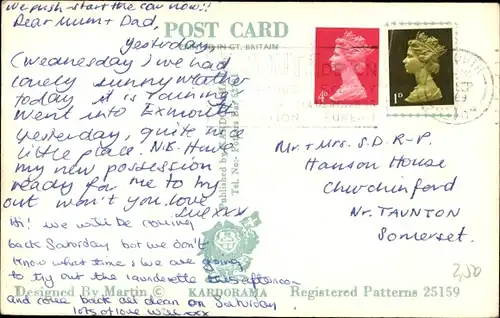 We push-start the car now!!
Dear Mum + Dad,
Yesterday
(Wednesday) we had
lovely sunny weather
today it is raining
Went into Exmouth
yesterday, quite nice
little place. N.B. Have
my new possession
ready for me to try
out won't you. love
Sue xxx
Hi! we will be coming
back Saturday but we don't
know what time; we are going
to try out the launderette this afternoon
and come back all clean on Saturday
lots of love xxx
POST CARD
PRINTED IN GT. BRITAIN
Published by KARDORAMA
Tel. No:- Potters Bar
4D
1D
Mr + Mrs. S.D.R-P.
Hanson House
Churchinford
Nr. TAUNTON
Somerset.
2,50
Designed By Martin © KARDORAMA Registered Patterns 25159